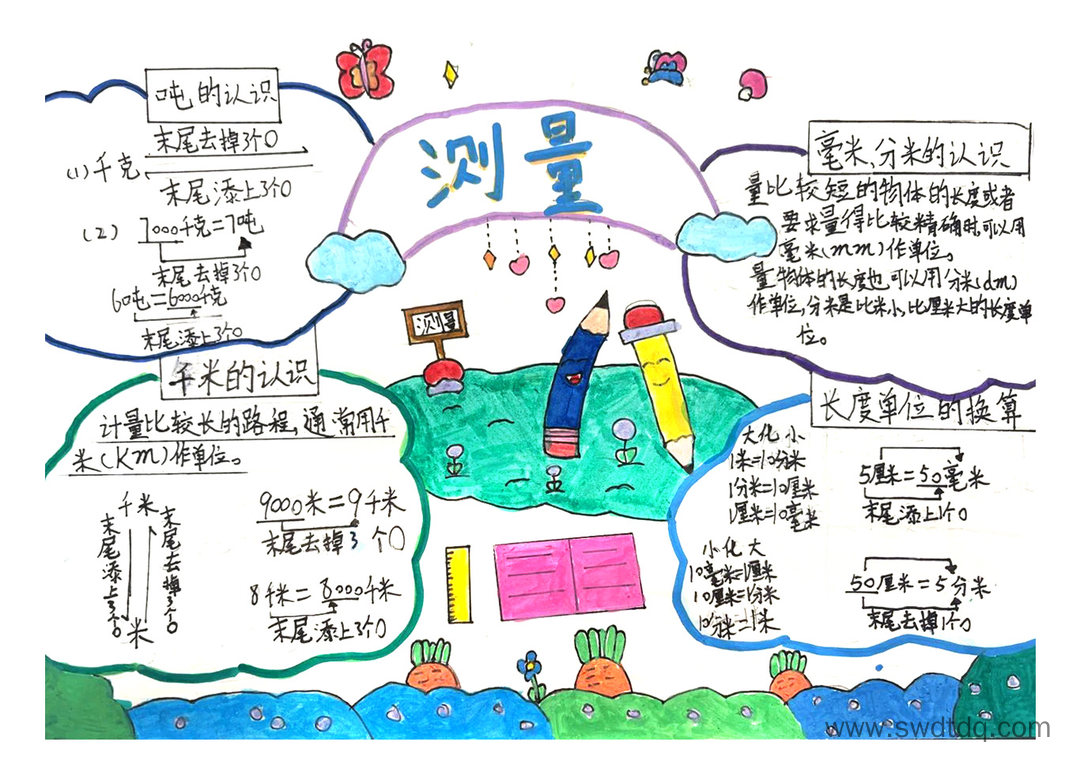 测量
吨的认识
末尾去掉3个0
(1)千克
末尾添上3个0
(2) 7000千克=7吨
末尾去掉3个0
60吨=6000千克
末尾添上3个0
毫米、分米的认识
量比较短的物体的长度或者
要求量得比较精确时,可以用
毫米(mm)作单位。
量物体的长度也可以用分米(dm)
作单位,分米是比米小,比厘米大的长度单
位。
测量
千米的认识
计量比较长的路程,通常用千
米(Km)作单位。
千米
末尾添上3个0
末尾去掉3个0
米
9000米=9千米
末尾去掉3个0
8千米=8000千米
末尾添上3个0
长度单位的换算
大化小
1米=10分米
1分米=10厘米
1厘米=10毫米
小化大
10毫米=1厘米
10厘米=1分米
10分米=1米
5厘米=50毫米
末尾添上1个0
50厘米=5分米
末尾去掉1个0
www.swdtdq.com